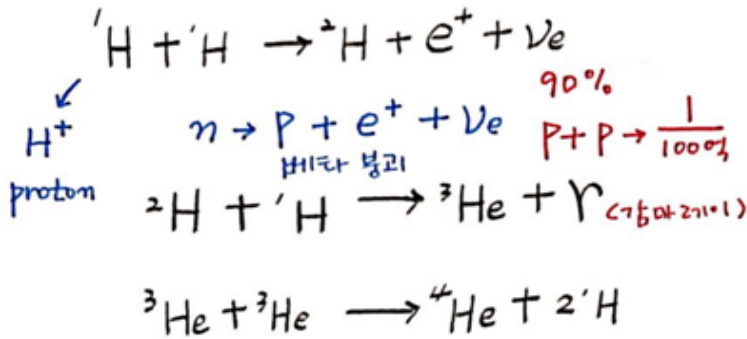 ¹H + ¹H → ²H + e⁺ + νe
H⁺
proton
n → P + e⁺ + νe
베타 붕괴
90%
P + P → 1/100억
²H + ¹H → ³He + γ (감마레이)
³He + ³He → ⁴He + 2¹H